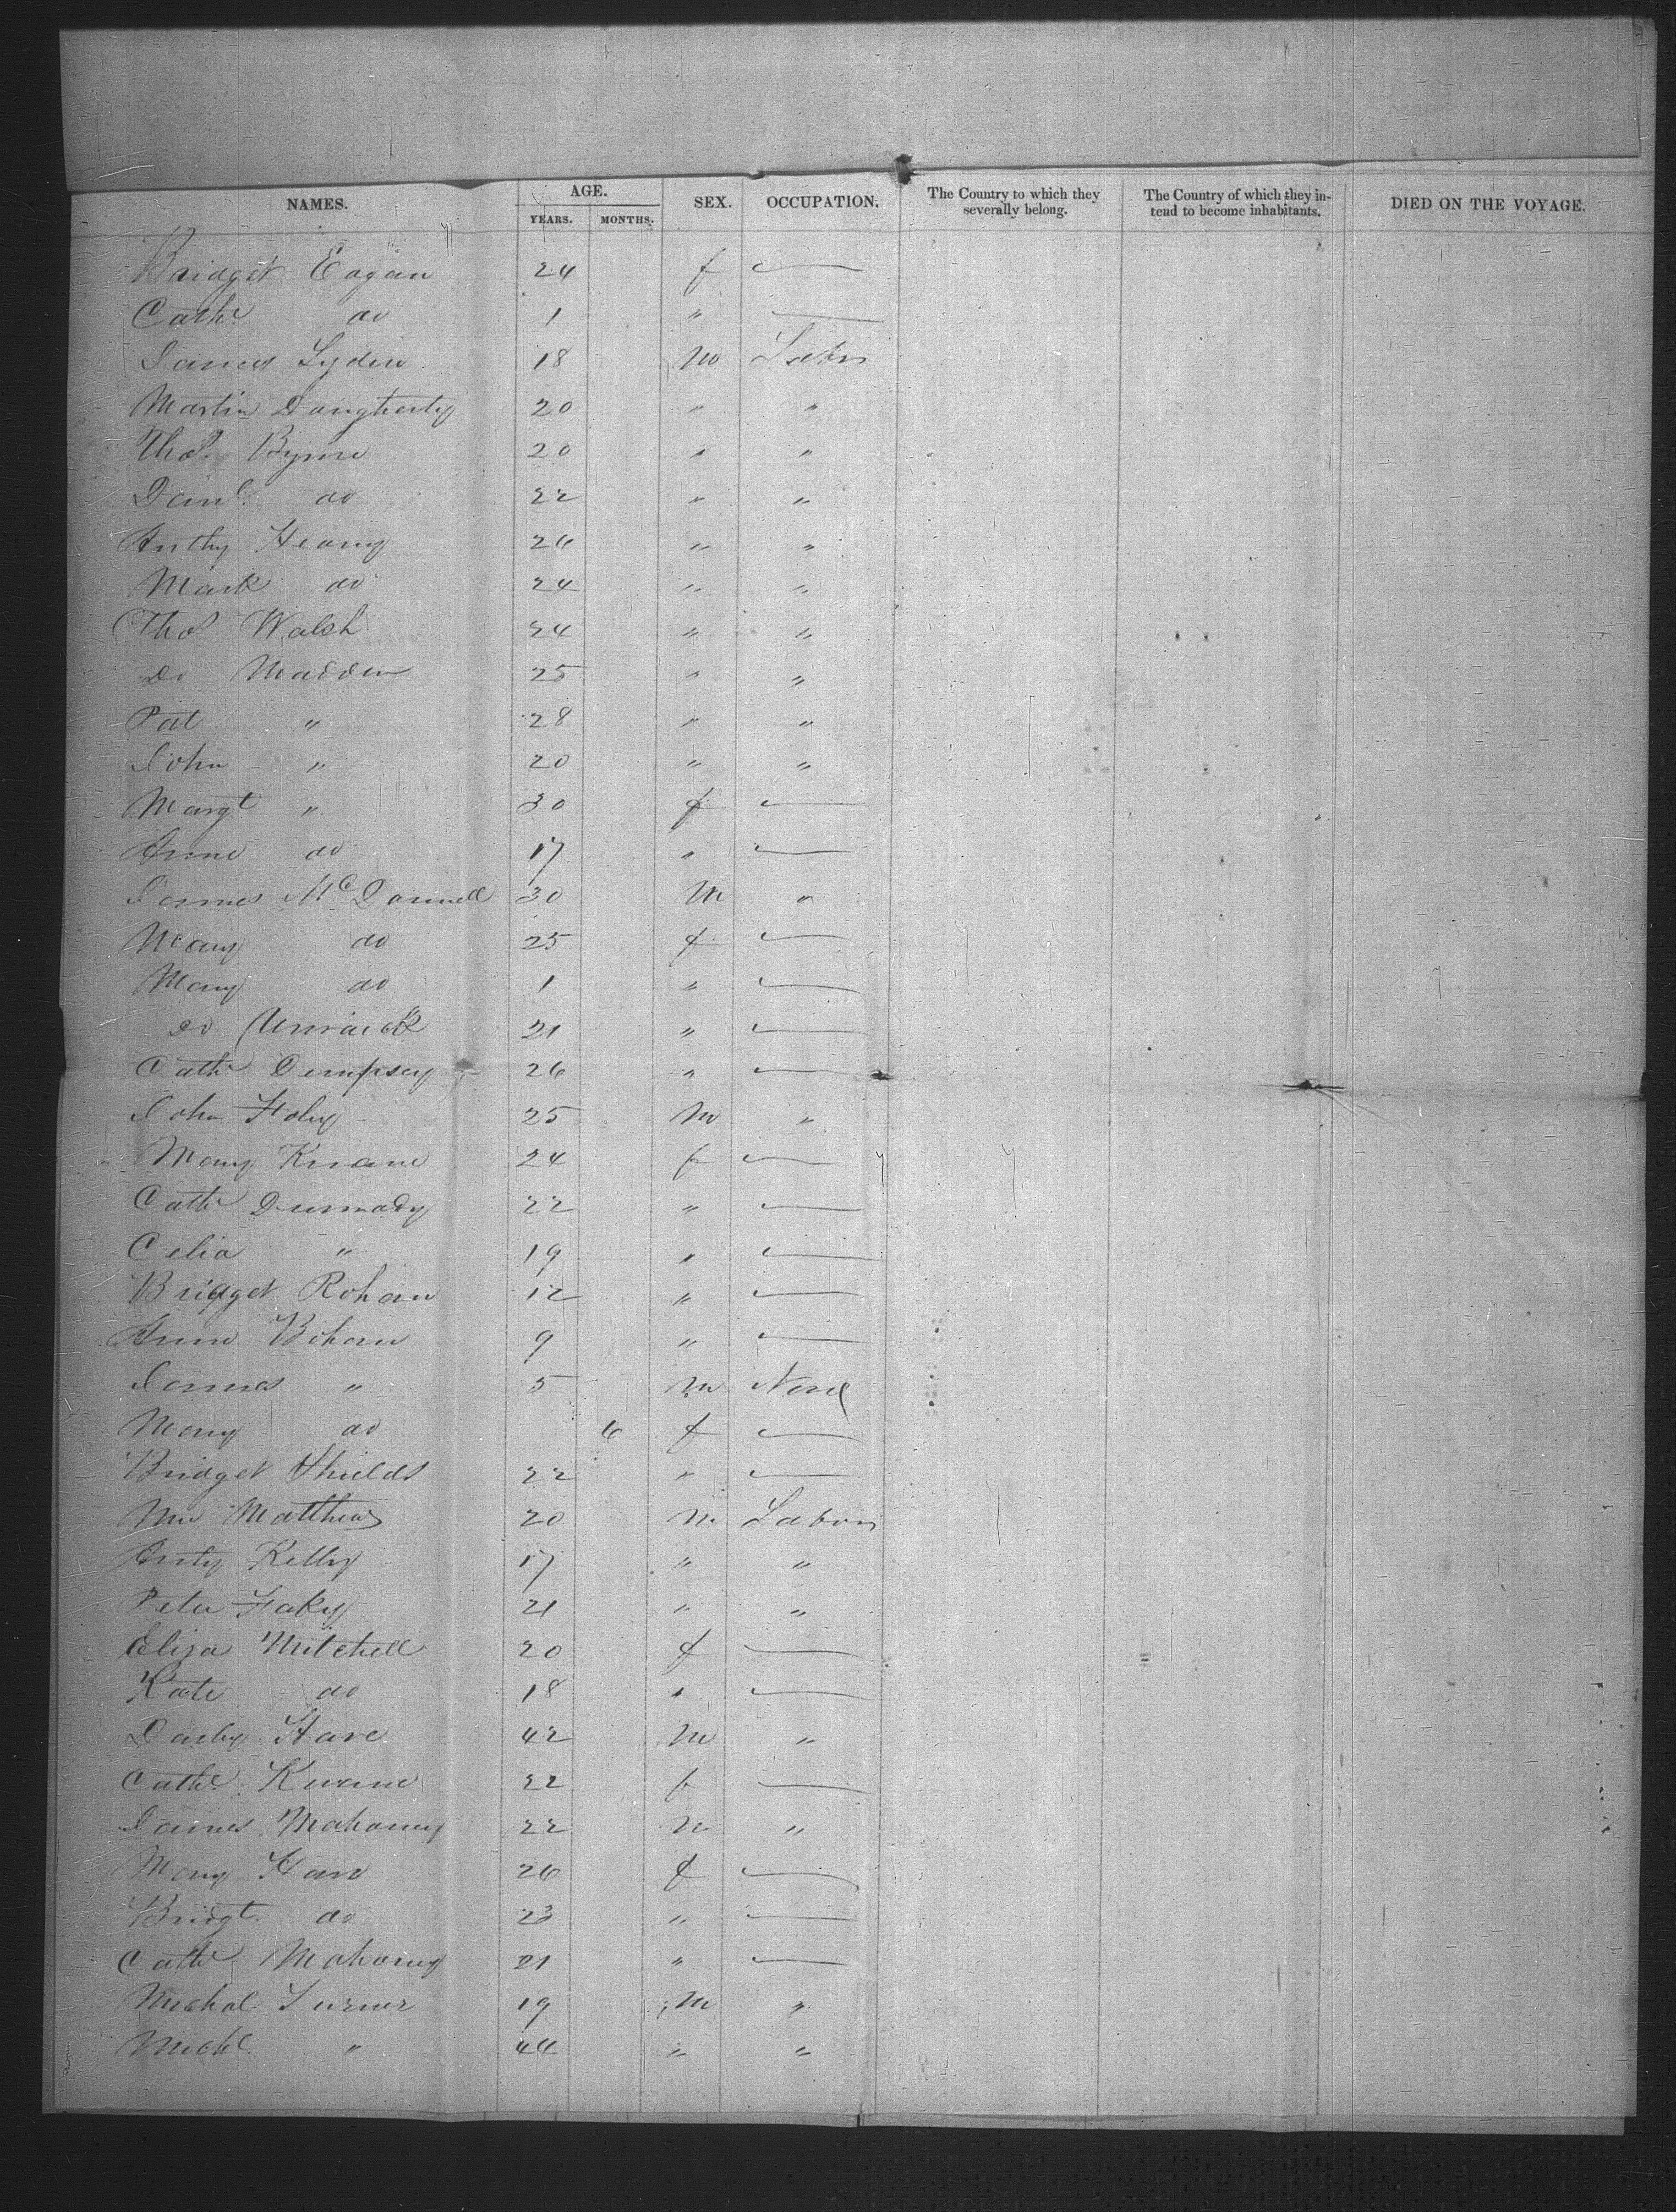 NAMES. AGE. YEARS. MONTHS. SEX. OCCUPATION. The Country to which they severally belong. The Country of which they intend to become inhabitants. DIED ON THE VOYAGE.
Bridget Eagan 24 f —
Cathe do 1 " —
James Lyden 18 m Labr
Martin Daugherty 20 " "
Thos. Byrne 20 " "
Danl. do 22 " "
Anthy Heany 26 " "
Mark do 24 " "
Thos Walsh 24 " "
Do Madden 25 " "
Pat " 28 " "
John " 20 " "
Margt " 30 f —
Anne do 17 " —
James McDonnell 30 m "
Mary do 25 f —
Mary do 1 " —
do 21 " —
Cathe Dempsey 26 " —
John Foley 25 m "
Mary Kirane 24 f —
Cathe 22 " —
Celia " 19 " —
Bridget Rohan 12 " —
Anne Bohan 9 " —
James " 5 m None
Mary do 6 f —
Bridget Shields 22 " —
Mw Matthews 20 m Labor
Anty Kelly 17 " "
Peter Fahy 21 " "
Eliza Mitchell 20 f —
Kate do 18 " —
Darby Hare 42 m "
Cathe. Kirane 22 f —
James Mahoney 22 m "
Mary Hare 26 f —
Bridgt. do 23 " —
Cathe Mahoney 21 " —
Michal Turner 19 m "
Michl. " 44 " "